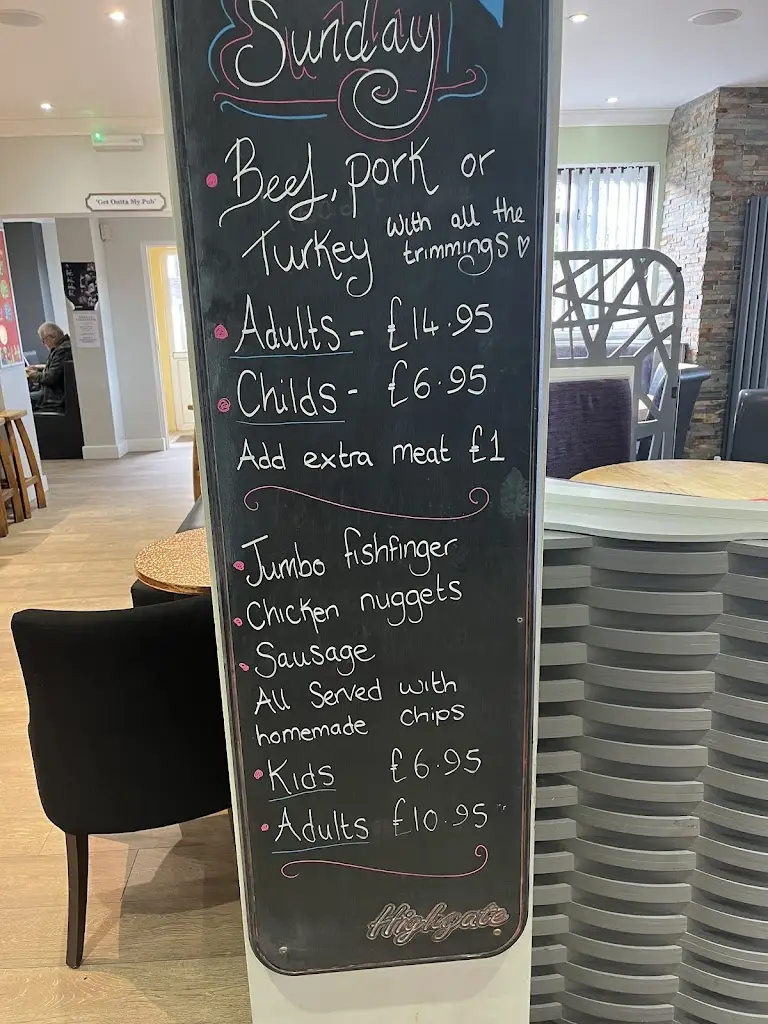 Sunday
Beef, pork or
Turkey with all the
trimmings ♡
Adults - £14.95
Childs - £6.95
Add extra meat £1
Jumbo fishfinger
Chicken nuggets
Sausage
All Served with
homemade chips
Kids £6.95
Adults £10.95
Highgate
'Get Outta My Pub'